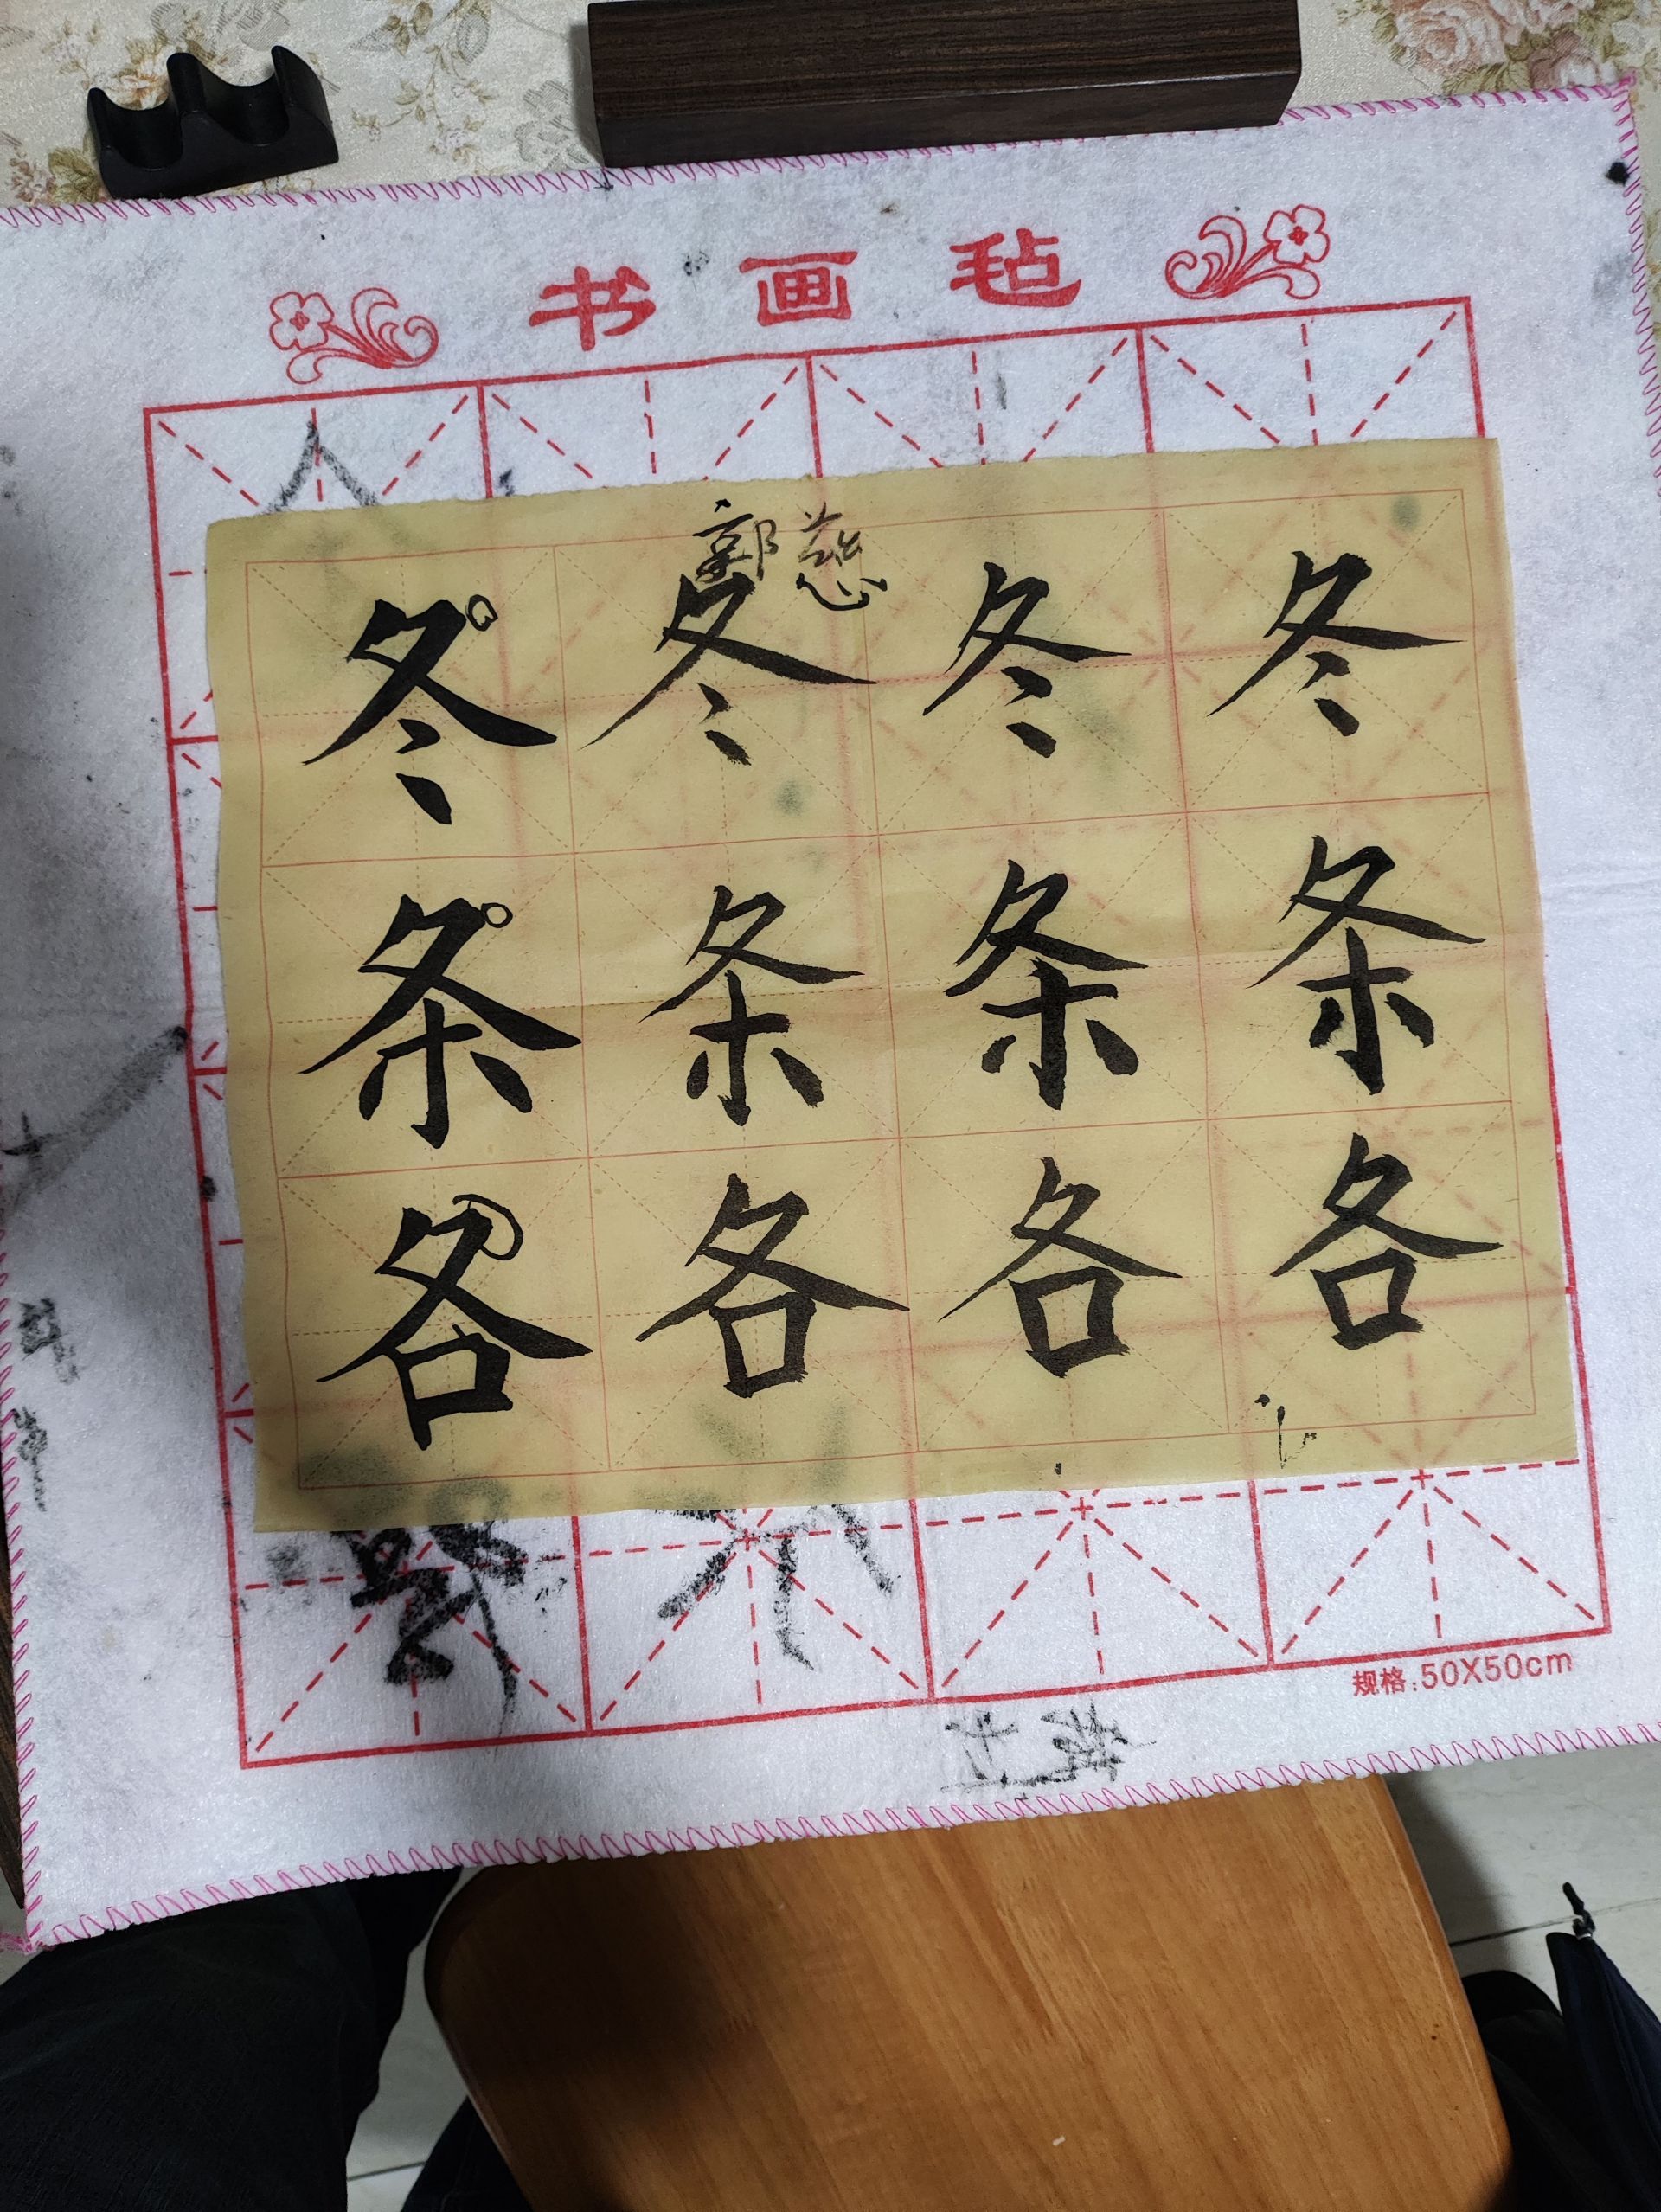 书画毡
郭慈
冬冬冬冬
条条条条
各各各各
规格:50X50cm